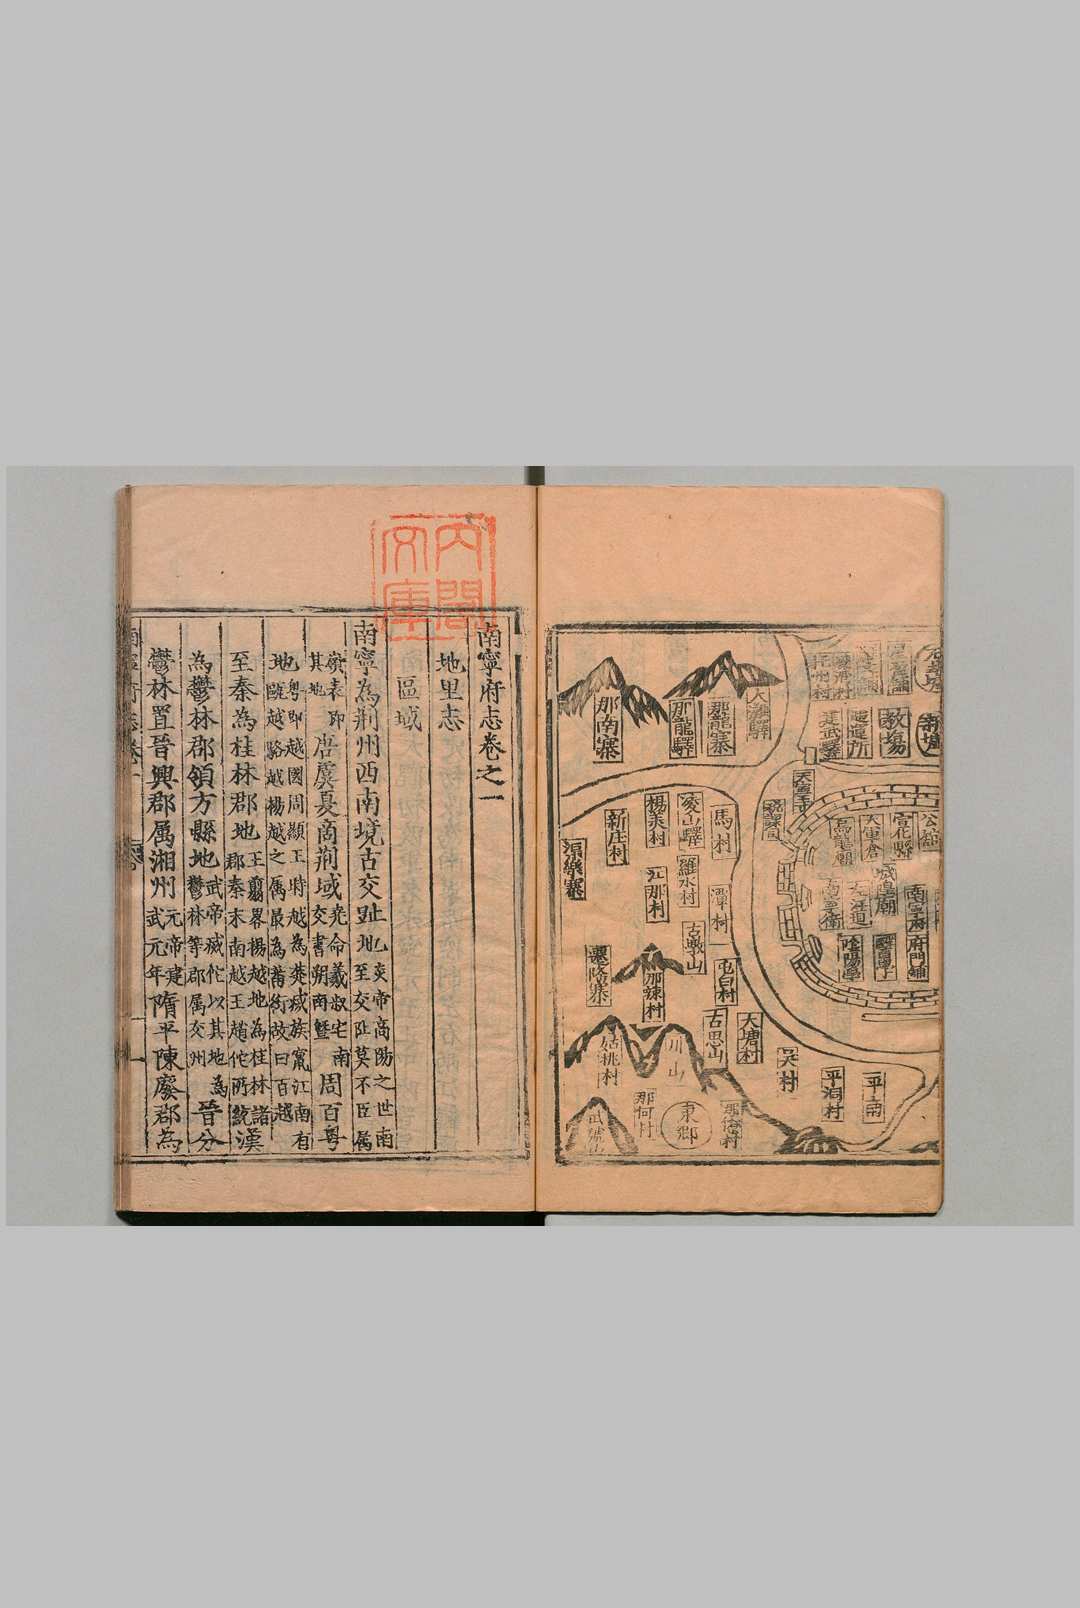 那南寨
那龍驛
那龍寨
大灘驛
教塲
天寧寺
楊美村
凌山驛
馬村
新庄村
羅水村
江那村
潭村
古戰山
遷隆寨
那練村
屯白村
古思山
大塘村
姑桃村
川山
那何村
東鄉
平洞村
平南
烏龍廟
大軍倉
宣化縣
公館
城隍廟
左江道
南寧衛
南寧府
陰陽學
府門鋪
内閣文庫
南寧府志卷之一
地里志
區域
南寧為荆州西南境古交趾地炎帝高陽之世南至交阯莫不臣属
嶺表即其地唐虞夏商荆域堯命羲叔宅南交書朔南曁周百粤
地粤即越國周顯王時越為楚㓕族竄江南有甌越駱越揚越之属最為蕃衍故曰百越
至秦為桂林郡地王翦畧揚越地為桂林諸郡秦末南越王趙佗所統漢
為鬱林郡領方縣地武帝㓕佗以其地為鬱林等郡属交州晉分
鬱林置晉興郡属湘州元帝建武元年隋平陳廢郡為
南寧府志卷一
一